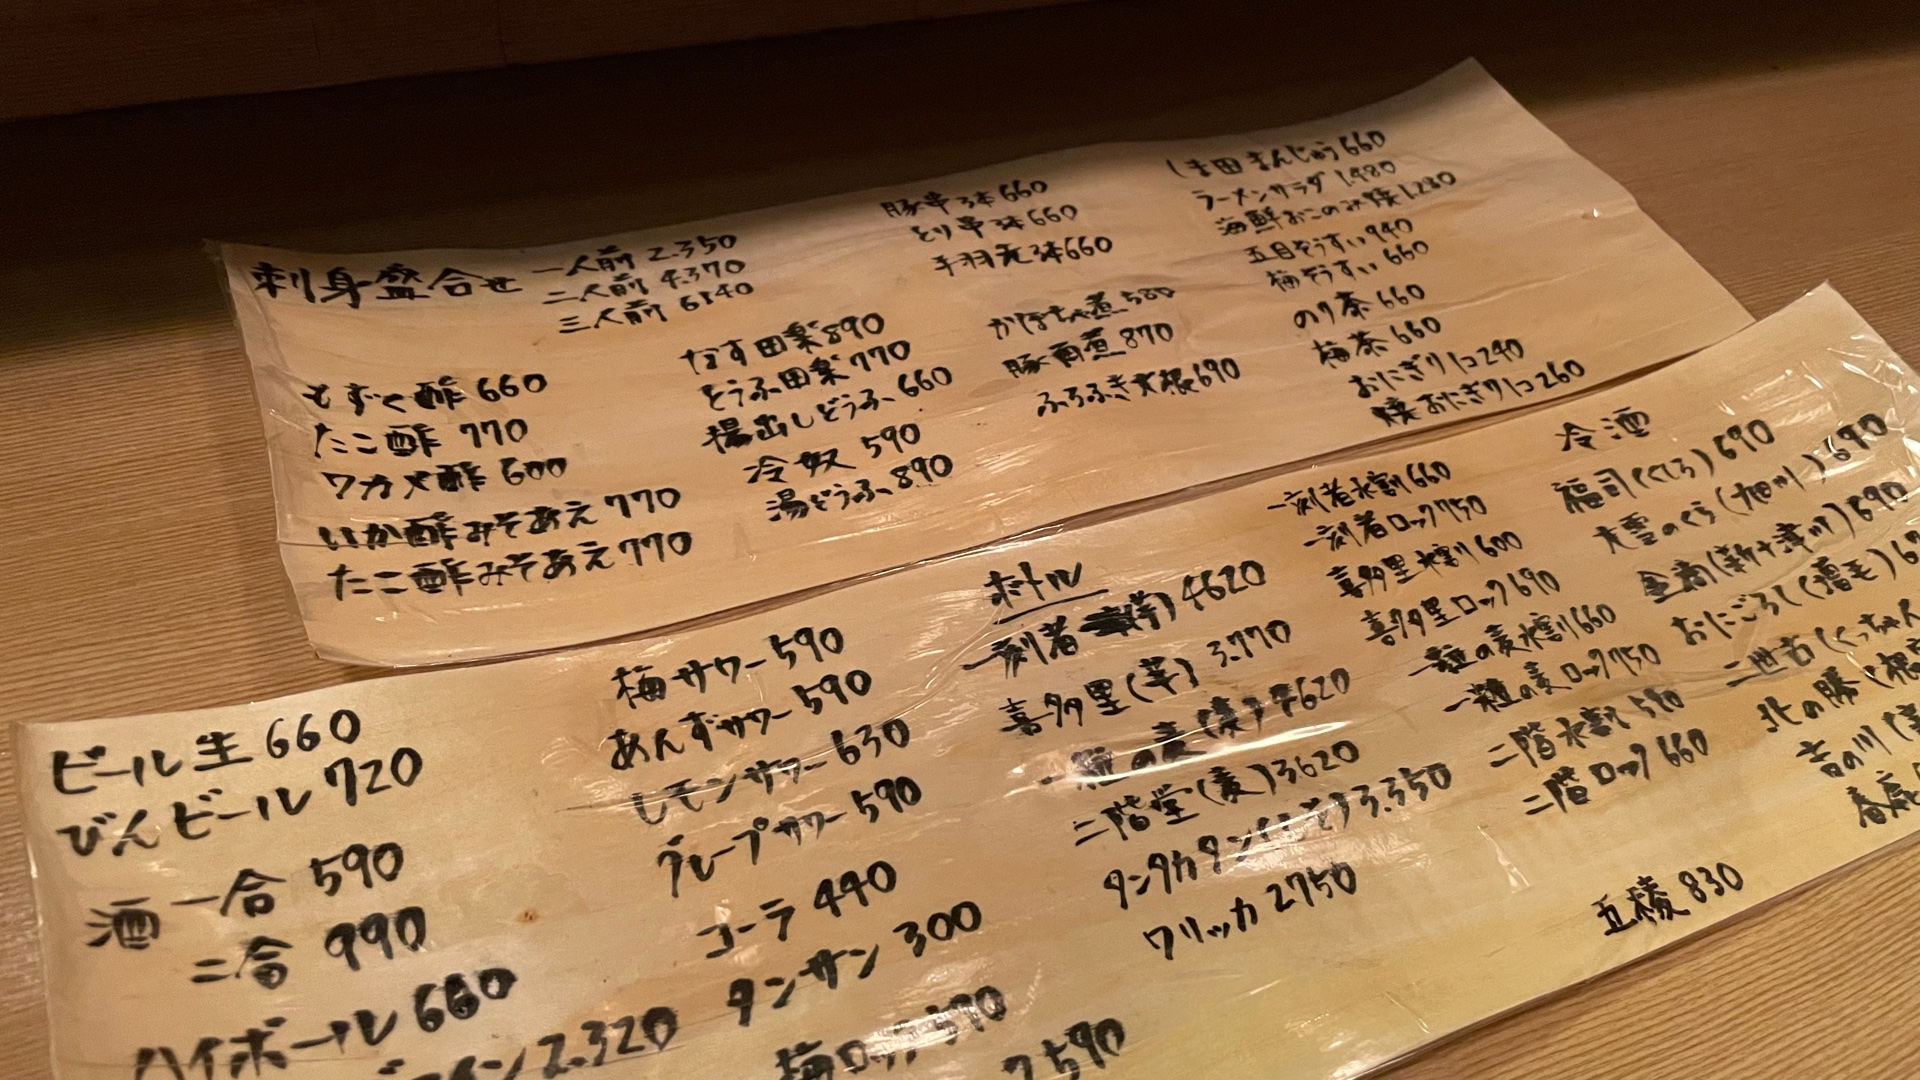 刺身盛合せ 一人前 2.350
二人前 4.370
三人前 6140
もずく酢 660
たこ酢 770
ワカメ酢 600
いか酢みそあえ 770
たこ酢みそあえ 770
なす田楽 890
とうふ田楽 770
揚出しどうふ 660
冷奴 590
湯どうふ 890
豚串3本 660
とり串3本 660
手羽先3本 660
かぼちゃ煮 580
豚角煮 870
ふろふき大根 690
しま田まんじゅう 660
ラーメンサラダ 1.480
海鮮おこのみ焼 1.280
五目ぞうすい 940
梅ぞうすい 660
のり茶 660
梅茶 660
おにぎり1コ 240
焼おにぎり1コ 260
ビール生 660
びんビール 720
酒 一合 590
二合 990
ハイボール 660
イン 2.320
梅サワー 590
あんずサワー 590
レモンサワー 630
グレープサワー 590
コーラ 440
タンサン 300
梅ロック 590
590
ボトル
一刻者 (芋) 4620
喜多里 (芋) 3.770
一粒の麦 (麦) 4620
二階堂 (麦) 3620
タンタカタン (しそ) 3.350
ウォッカ 2750
一刻者水割 660
一刻者ロック 750
喜多里水割り 600
喜多里ロック 690
一粒の麦水割 660
一粒の麦ロック 750
二階水割 590
二階ロック 660
冷酒
福司 (くしろ) 690
大雪のくら (旭川) 690
金滴 (新十津川) 690
おにごろし (増毛)
二世古 (くっちゃん
北の勝 (根室
吉の川
五稜 830